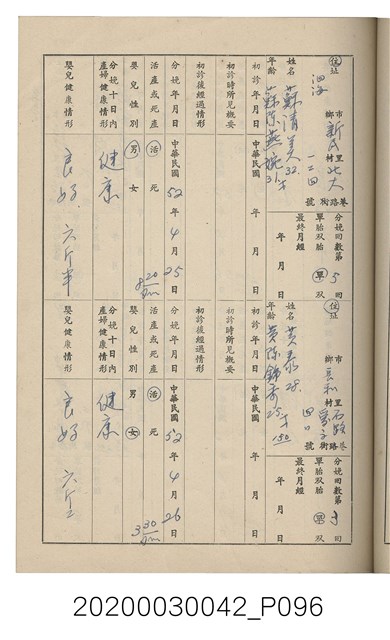 住址
泗海
鄉市
新民
村里
北大
路街巷
一二四
號
姓名
蘇清美 32
年齡
蘇陳燕婉 31才
分娩回數第 5 回
單胎双胎 單 双
最終月經 年 月 日
初診年月日 年 月 日
初診時所見概要
初診後經過情形
分娩年月日 中華民國 52 年 4 月 25 日
活產或死產 活 死
8 20
嬰兒性別 男 女
分娩十日內產婦健康情形
健康
嬰兒健康情形
良好 六斤半
住址
鄉市
村里
路街巷
號
姓名
28
年齡
25才
150
分娩回數第 3 回
單胎双胎 單 双
最終月經 年 月 日
初診年月日 年 月 日
初診時所見概要
初診後經過情形
分娩年月日 中華民國 52 年 4 月 26 日
活產或死產 活 死
3 30
嬰兒性別 男 女
分娩十日內產婦健康情形
健康
嬰兒健康情形
良好 六斤二
20200030042_P096